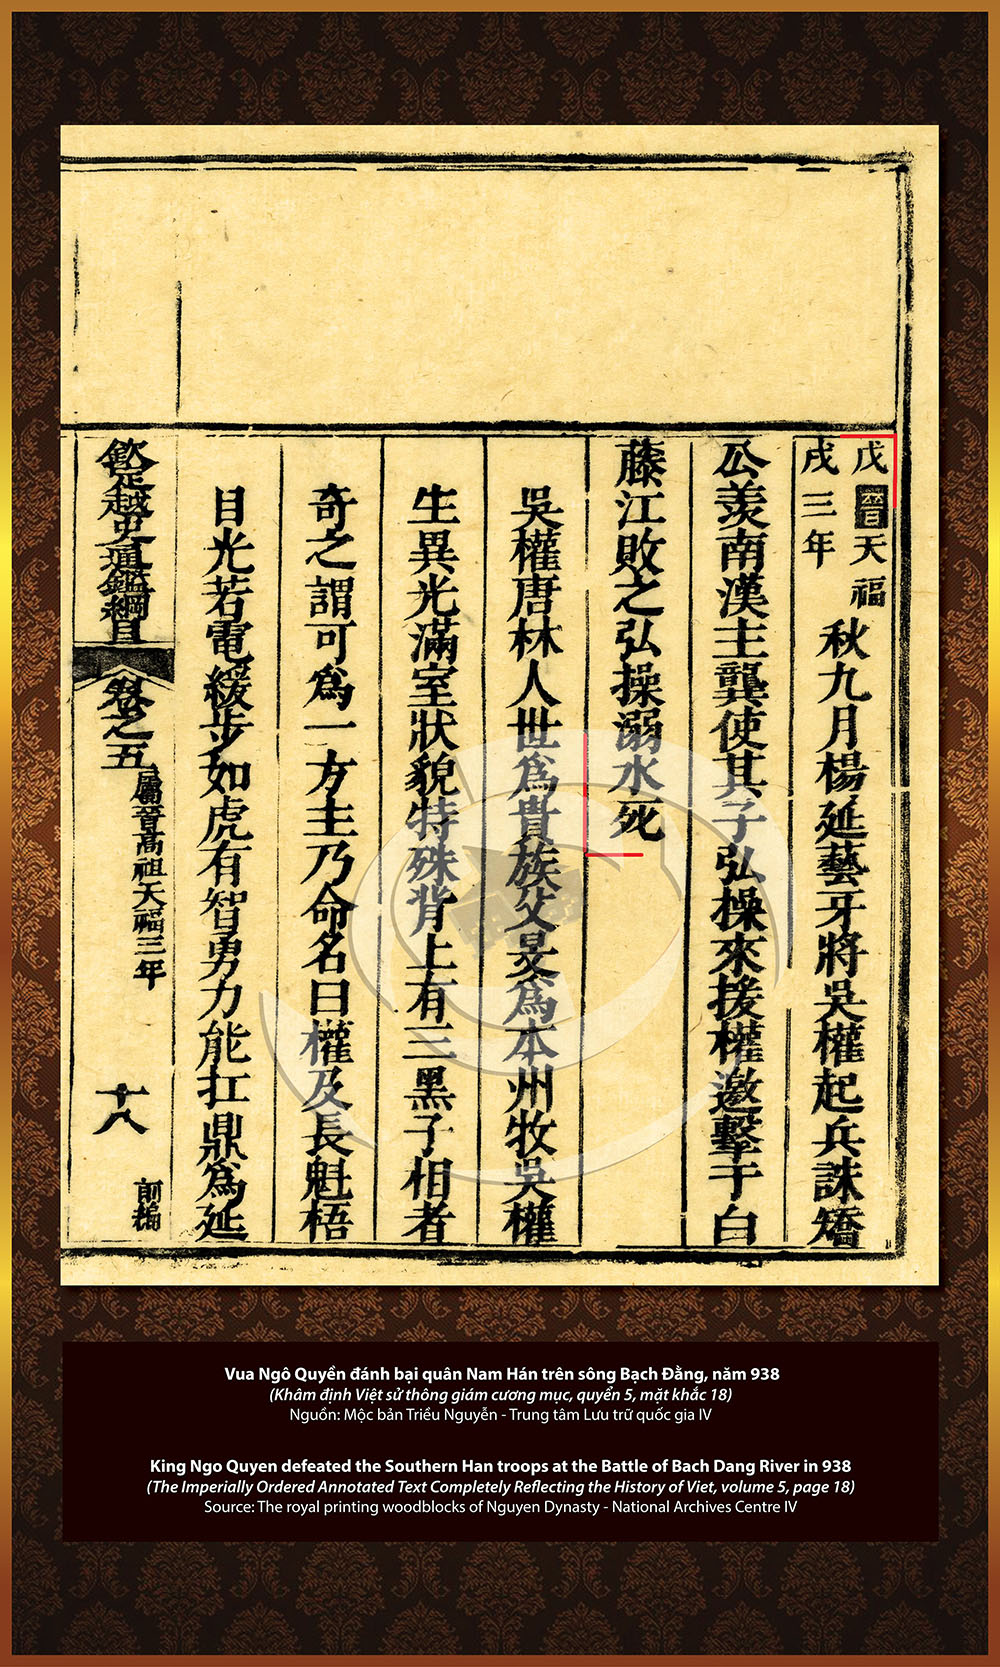 戊戌
晉天福三年
秋九月楊延藝牙將吳權起兵誅矯
公羨南漢主龔使其子弘操來援權邀擊于白
藤江敗之弘操溺水死
吳權唐林人世爲貴族父旻爲本州牧吳權
生異光滿室狀貌特殊背上有三黑子相者
奇之謂可爲一方主乃命名曰權及長魁梧
目光若電緩步如虎有智勇力能扛鼎爲延
欽定越史通鑑綱目
卷之五
屬晉高祖天福三年
十八
前編
Vua Ngô Quyền đánh bại quân Nam Hán trên sông Bạch Đằng, năm 938
(Khâm định Việt sử thông giám cương mục, quyển 5, mặt khắc 18)
Nguồn: Mộc bản Triều Nguyễn - Trung tâm Lưu trữ quốc gia IV
King Ngo Quyen defeated the Southern Han troops at the Battle of Bach Dang River in 938
(The Imperially Ordered Annotated Text Completely Reflecting the History of Viet, volume 5, page 18)
Source: The royal printing woodblocks of Nguyen Dynasty - National Archives Centre IV